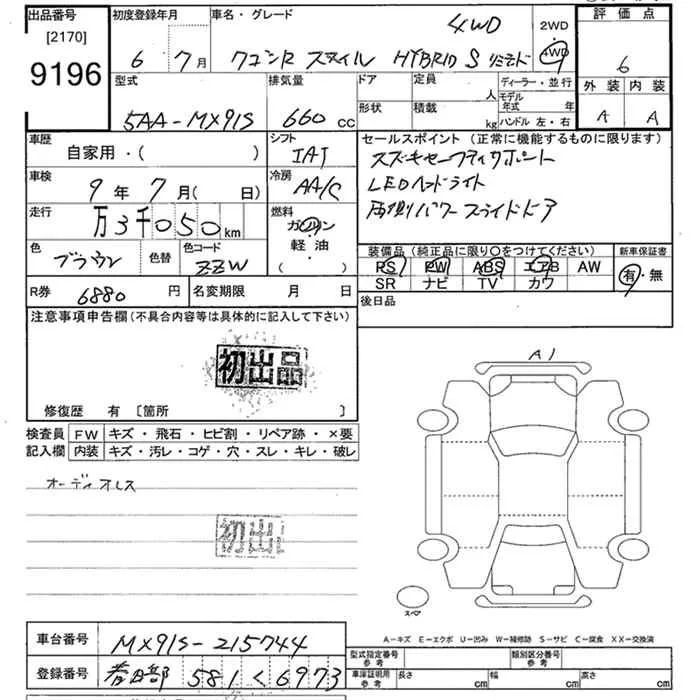 出品番号 初度登録年月 車名・グレード 4WD 2WD 評価点
[2170]
9196 6 7月 ワゴンR スマイル HYBRID S リミテッド 4WD 6
型式 排気量 ドア 定員 人 ディーラー・並行 外装 内装
5AA-MX91S 660 cc 形状 積載 kg モデル年式 年 ハンドル 左・右 A A
車歴 シフト セールスポイント (正常に機能するものに限ります)
自家用・( ) IAT スズキセーフティサポート
車検 9年 7月( 日) 冷房 AA/C LEDヘッドライト
走行 万3千050km 燃料 ガソリン 両側パワースライドドア
軽油
( )
色 ブラウン 色替 色コード ZZW
装備品 (純正品に限り○をつけてください) 新車保証書
PS PW ABS エアB AW 有・無
SR ナビ TV カワ
R券 6880 円 名変期限 月 日 後日品
注意事項申告欄(不具合内容等は具体的に記入して下さい)
初出品
A1
修復歴 有 [箇所 ]
検査員 FW キズ・飛石・ヒビ割・リペア跡・×要
記入欄 内装 キズ・汚レ・コゲ・穴・スレ・キレ・破レ
オーディオレス
初出品
スペア
A-キズ E-エクボ U-凹み W-補修跡 S-サビ C-腐食 XX-交換済
車台番号 MX91S-215744
型式指定番号 参考 類別区分番号 参考
登録番号 春日部 581 く 6973
車庫証明用 参考 長さ cm 幅 cm 高さ cm